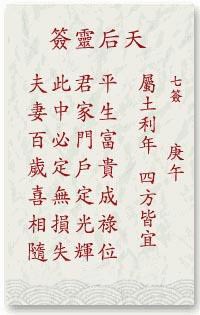 天后靈簽
七簽 庚午
屬土利年 四方皆宜
平生富貴成祿位
君家門戶定光輝
此中必定無損失
夫妻百歲喜相隨